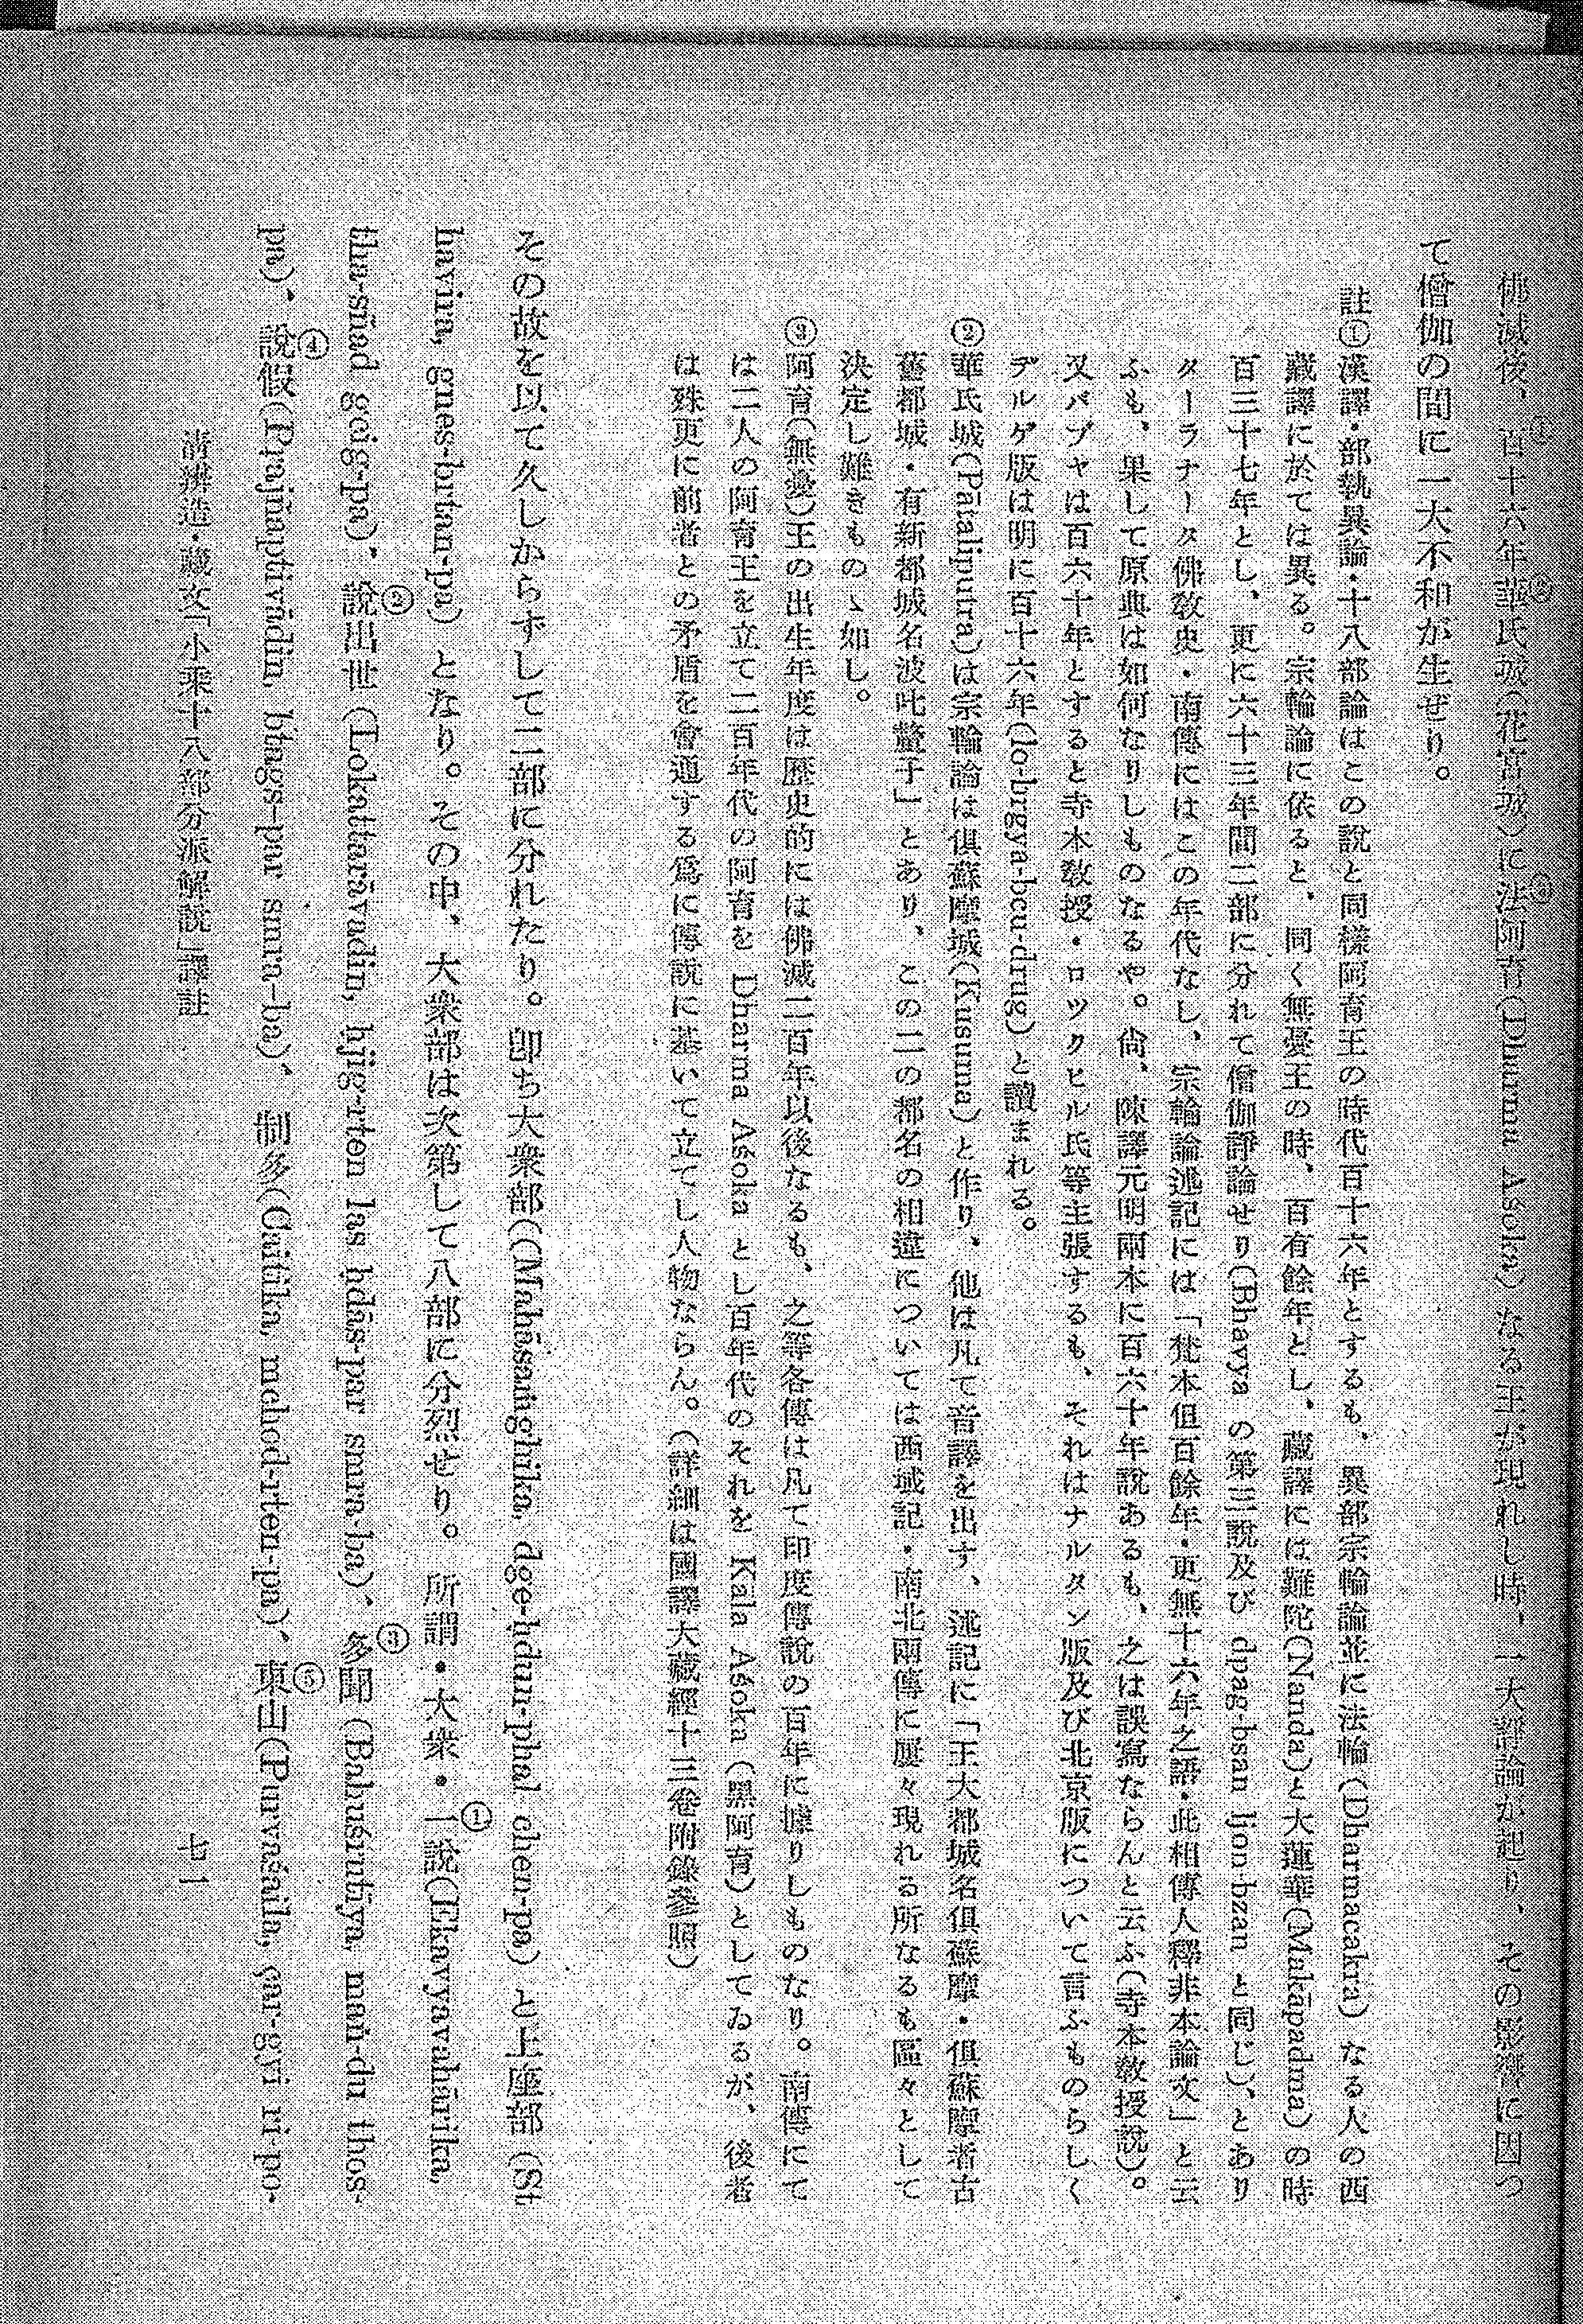 佛滅後、百十六年①華氏城②(花宮城)に法阿育③(Dharma Aśoka)なる王が現れし時、一大諍論が起り、その影響に因つ
て僧伽の間に一大不和が生ぜり。
註①漢譯・部執異論・十八部論はこの說と同樣阿育王の時代百十六年とするも、異部宗輪論並に法輪(Dharmacakra)なる人の西
藏譯に於ては異る。宗輪論に依ると、同く無憂王の時、百有餘年とし、藏譯には難陀(Nanda)と大蓮華(Makāpadma)の時
百三十七年とし、更に六十三年間二部に分れて僧伽諍論せり(Bhavya の第三說及び dpag-bsan ljon-bzan と同じ)、とあり
ターラナータ佛敎史・南傳にはこの年代なし、宗輪論述記には「梵本但百餘年・更無十六年之語・此相傳人釋非本論文」と云
ふも、果して原典は如何なりしものなるや。尙、陳譯元明兩本に百六十年說あるも、之は誤寫ならんと云ふ(寺本敎授說)。
又バブヤは百六十年とすると寺本敎授・ロツクヒル氏等主張するも、それはナルタン版及び北京版について言ふものらしく
デルゲ版は明に百十六年(lo-brgya-bcu-drug)と讀まれる。
②華氏城(Pātaliputra)は宗輪論は俱蘇摩城(Kusuma)と作り、他は凡て音譯を出す、述記に「王大都城名俱蘇摩・俱蘇摩者古
舊都城・有新都城名波吒釐子」とあり、この二の都名の相違については西域記・南北兩傳に屢々現れる所なるも區々として
決定し難きものゝ如し。
③阿育(無憂)王の出生年度は歷史的には佛滅二百年以後なるも、之等各傳は凡て印度傳說の百年に據りしものなり。南傳にて
は二人の阿育王を立て二百年代の阿育を Dharma Aśoka とし百年代のそれを Kala Aśoka(黑阿育)としてゐるが、後者
は殊更に前者との矛盾を會通する爲に傳說に基いて立てし人物ならん。(詳細は國譯大藏經十三卷附錄參照)
その故を以て久しからずして二部に分れたり。卽ち大衆部((Mahāsaṁghika, dge-hdun-phal chen-pa)と上座部(St
havira, gnes-brtan-pa)となり。その中、大衆部は次第して八部に分烈せり。所謂・大衆・一說①(Ekavyavahārika,
tha-sñad gcig-pa)、說出世②(Lokattaravadin, hjig-rten las hdās-par smra-ba)、多聞③(Bahuśrutīya, maṅ-du thos-
pa)、說假④(Prajñaptivādin, btags-par smra-ba)、制多(Caitika, mchod-rten-pa)、東山⑤(Purvaśaila, çar-gyi ri-po-
淸辨造・藏文「小乘十八部分派解說」譯註
七一